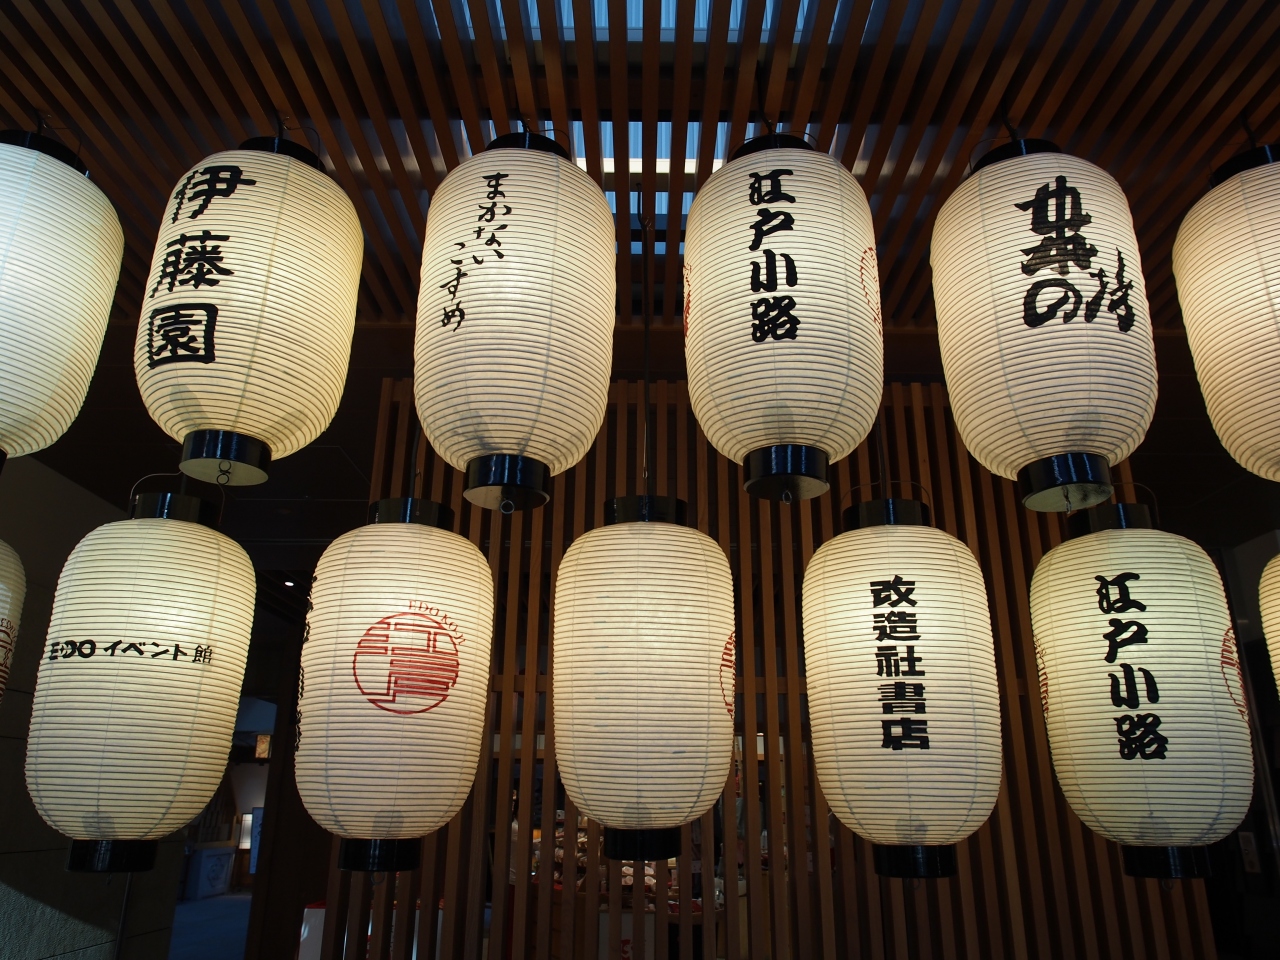 伊藤園
まかない
こすめ
江戸小路
EDOイベント館
EDOKOJI
改造社書店
江戸小路